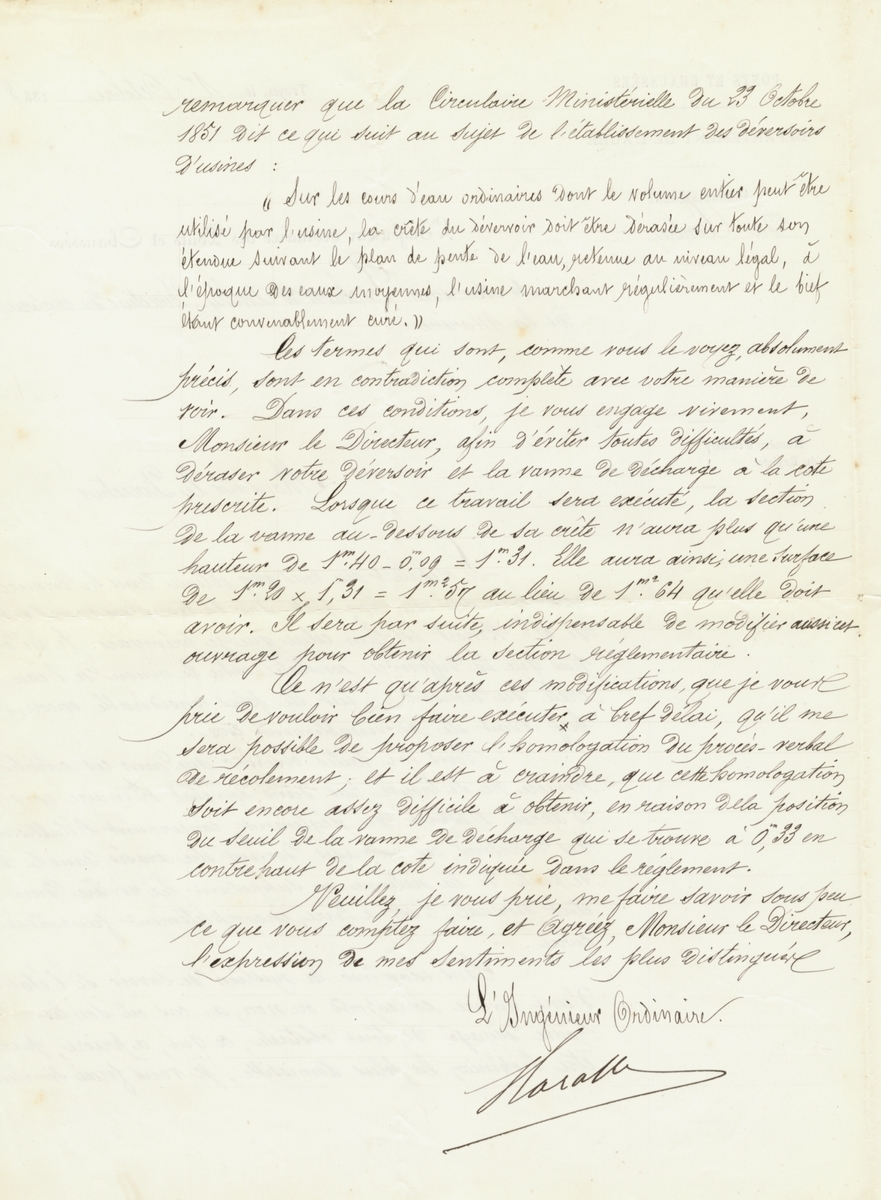 remarquer que la Circulaire Ministérielle du 23 Octobre
1851 dit ce qui suit au sujet de l'établissement des déversoirs
d'usines :
« Sur les cours d'eau ordinaires dont le volume entier peut être
utilisé par l'usine, la crête du déversoir doit être dérasée sur toute son
étendue suivant le plan de pente de l'eau, retenue au niveau légal, à
l'époque des eaux moyennes, l'usine marchant régulièrement et le bief
étant convenablement curé. »
Ces termes qui sont, comme vous le voyez, absolument
précis, sont en contradiction complète avec votre manière de
voir. Dans ces conditions, je vous engage vivement,
Monsieur le Directeur, afin d'éviter toutes difficultés, à
déraser votre déversoir et la vanne de décharge à la cote
prescrite. Lorsque ce travail sera exécuté, la section
de la vanne au-dessous de sa crête n'aura plus qu'une
hauteur de 1m.40 - 0m.09 = 1m.31. Elle aura ainsi, une surface
de 1m.20 x 1m,31 = 1m²57 au lieu de 1m²64 qu'elle doit
avoir. Il sera par suite, indispensable de modifier aussi cet
ouvrage pour obtenir la section réglementaire.
Ce n'est qu'après ces modifications, que je vous
prie de vouloir bien faire exécuter, à bref délai, qu'il me
sera possible de proposer l'homologation du procès-verbal
de récolement ; et il est à craindre, que cette homologation
soit encore assez difficile à obtenir, en raison de la position
du seuil de la vanne de décharge qui se trouve à 0m,33 en
contrehaut de la cote indiquée dans le réglement.
Veuillez, je vous prie, me faire savoir sous peu
ce que vous comptez faire, et Agréez, Monsieur le Directeur,
l'expression de mes sentiments les plus distingués
L'Ingénieur Ordinaire.